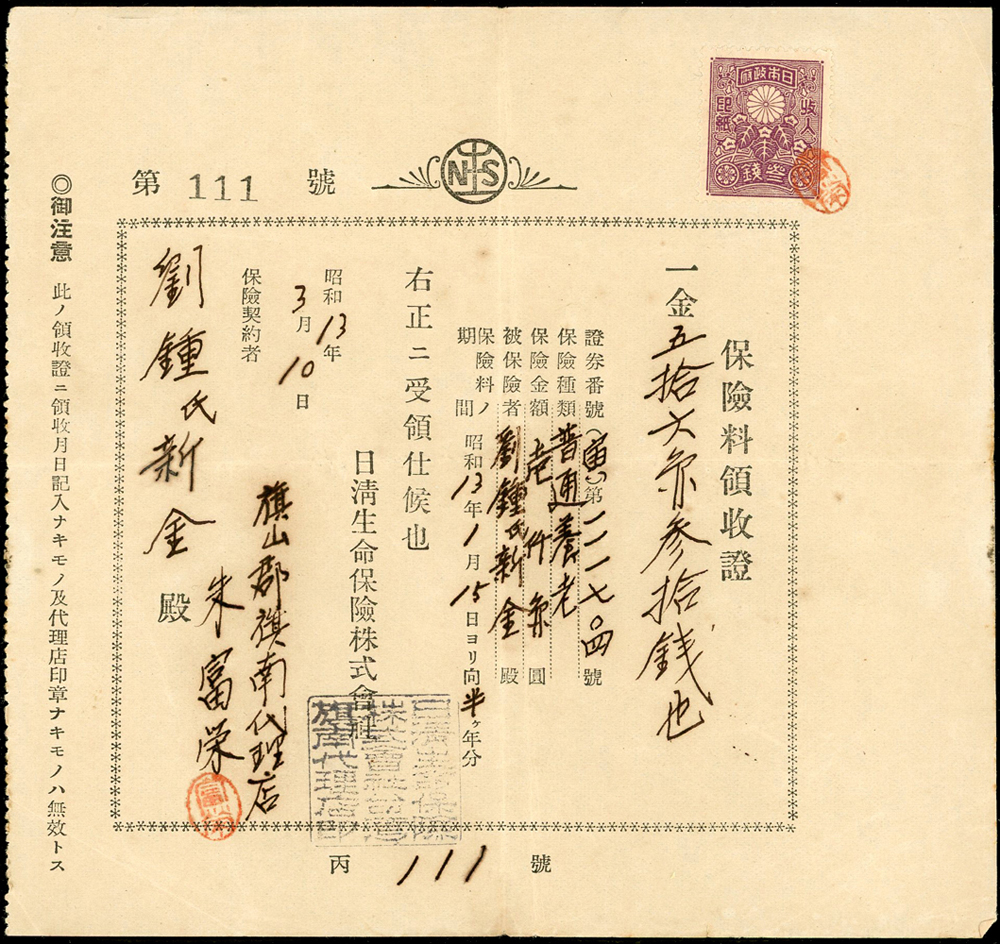 日本政府
收入
印紙
參錢
第 111 號
NS
保險料領收證
一金五拾六円参拾錢也
證券番號(寅)第二一一七〇四號
保險種類 普通養老
保險金額 壱仟円圓
被保險者 劉鍾氏新金 殿
保險料ノ期間 昭和13年1月15日ヨリ向半ヶ年分
右正ニ受領仕候也
日淸生命保險株式會社
旗山郡旗南代理店
朱富榮
昭和13年
3月10日
保險契約者
劉鍾氏新金 殿
株式會社台灣
旗南代理店印
丙 111 號
◎御注意 此ノ領收證ニ領收月日記入ナキモノ及代理店印章ナキモノハ無效トス